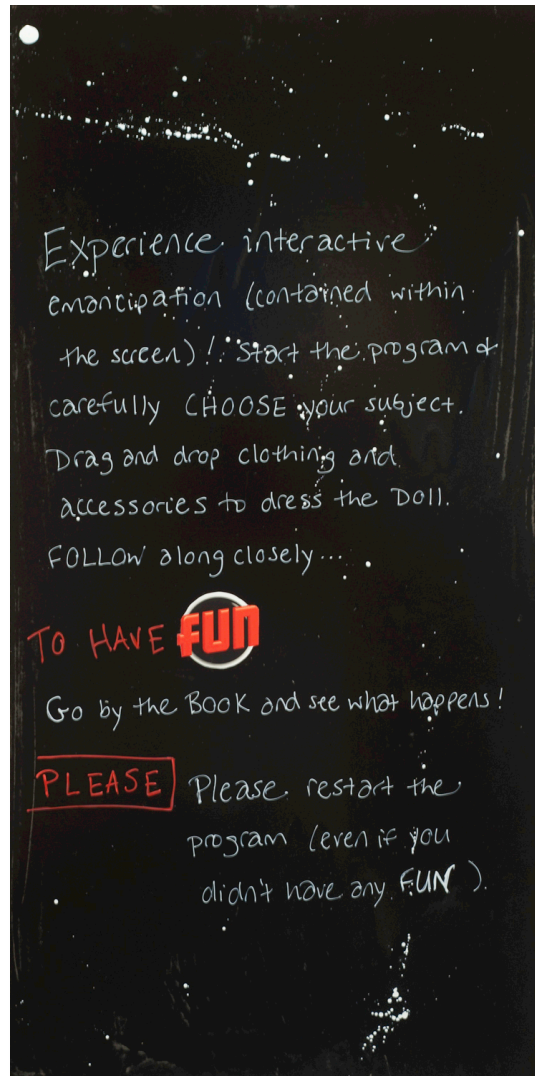 Experience interactive
emancipation (contained within
the screen)! Start the program &
carefully CHOOSE your subject.
Drag and drop clothing and
accessories to dress the Doll.
FOLLOW along closely...
TO HAVE FUN
Go by the BOOK and see what happens!
PLEASE Please restart the
program (even if you
didn't have any FUN).